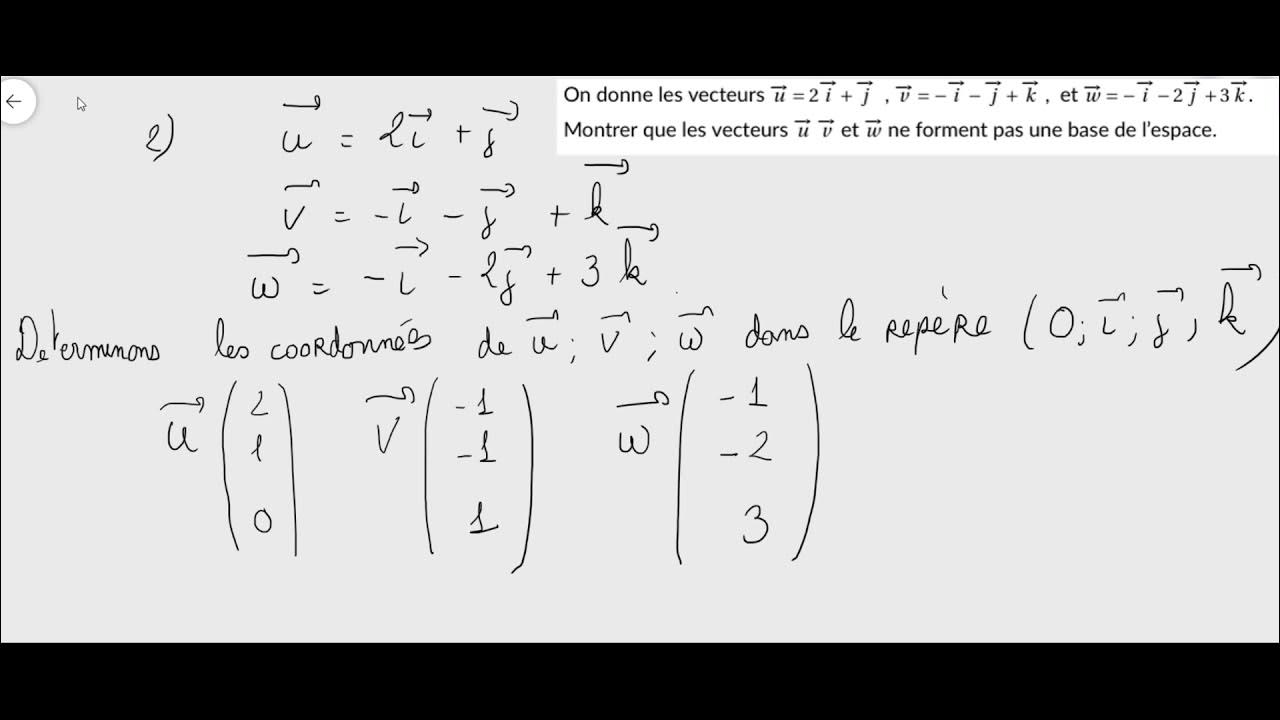 On donne les vecteurs u⃗ = 2 i⃗ + j⃗ , v⃗ = − i⃗ − j⃗ + k⃗ , et w⃗ = − i⃗ − 2 j⃗ + 3 k⃗ .
Montrer que les vecteurs u⃗ v⃗ et w⃗ ne forment pas une base de l'espace.
2) u⃗ = 2i⃗ + j⃗
v⃗ = -i⃗ - j⃗ + k⃗
w⃗ = -i⃗ - 2j⃗ + 3 k⃗
Determinons les coordonnées de u⃗ ; v⃗ ; w⃗ dans le repère (O; i⃗ ; j⃗ ; k⃗)
u⃗ ( 2 v⃗ ( -1 ) w⃗ ( -1 )
1 -1 -2
0 1 3